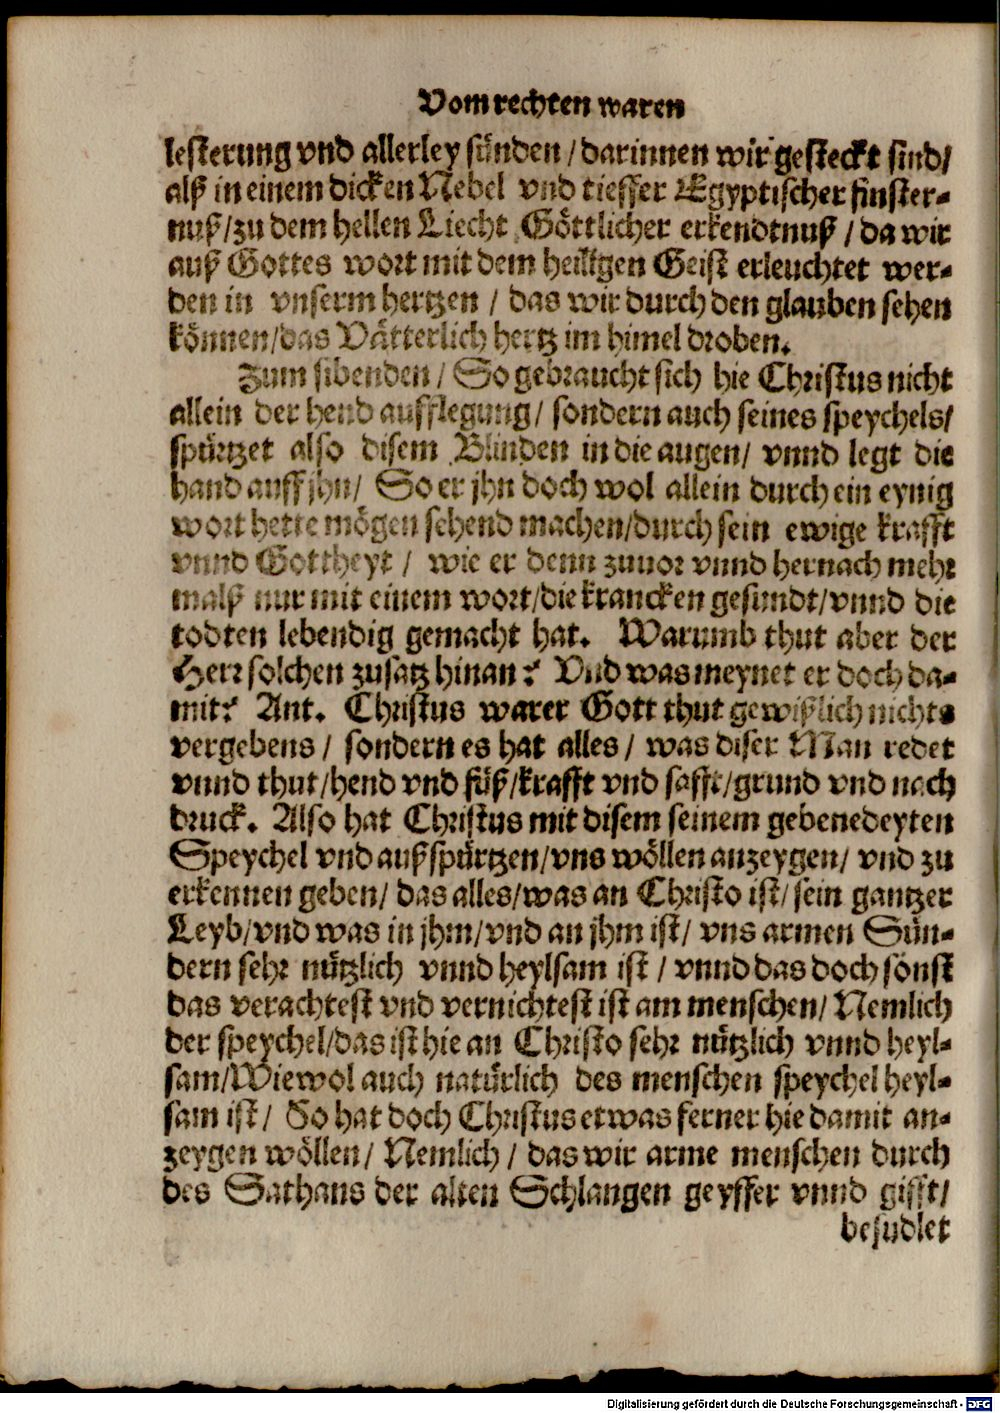 Vom rechten waren
lesterung vnd allerley sünden / darinnen wir gesteckt sind/
alß in einem dicken Nebel vnd tieffer Egyptischer finster-
nuß/zu dem hellen Liecht Göttlicher erkendtnuß / da wir
auß Gottes wort mit dem heiligen Geist erleuchtet wer-
den in vnserm hertzen / das wir durch den glauben sehen
können/das Vätterlich hertz im himel droben.
Zum sibenden / So gebraucht sich hie Christus nicht
allein der hend aufflegung/ sondern auch seines speychels/
spürtzet also disem Blinden in die augen/ vnnd legt die
hand auff jhn/ So er jhn doch wol allein durch ein eynig
wort hette mögen sehend machen/durch sein ewige krafft
vnnd Gottheyt / wie er denn zuuor vnnd hernach mehr
malß nur mit einem wort/die krancken gesundt/vnnd die
todten lebendig gemacht hat. Warumb thut aber der
Herr solchen zusatz hinan? Vnd was meynet er doch da-
mit? Ant. Christus warer Gott thut gewißlich nichts
vergebens / sondern es hat alles / was diser Man redet
vnnd thut/hend vnd füß/krafft vnd safft/grund vnd nach
druck. Also hat Christus mit disem seinem gebenedeyten
Speychel vnd außspürtzen/vns wöllen anzeygen/ vnd zu
erkennen geben/ das alles/was an Christo ist/ sein gantzer
Leyb/vnd was in jhm/vnd an jhm ist/ vns armen Sün-
dern sehr nützlich vnnd heylsam ist / vnnd das doch sonst
das verachtest vnd vernichtest ist am menschen/ Nemlich
der speychel/das ist hie an Christo sehr nützlich vnnd heyl-
sam/Wiewol auch natürlich des menschen speychel heyl-
sam ist / So hat doch Christus etwas ferner hie damit an-
zeygen wöllen/ Nemlich / das wir arme menschen durch
des Sathans der alten Schlangen geyffer vnnd gifft/
besudlet
Digitalisierung gefördert durch die Deutsche Forschungsgemeinschaft - DFG